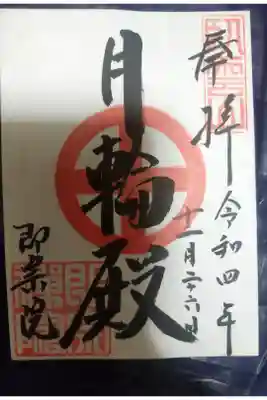 奉拝
令和四年
十一月二十六日
月輪殿
即宗院